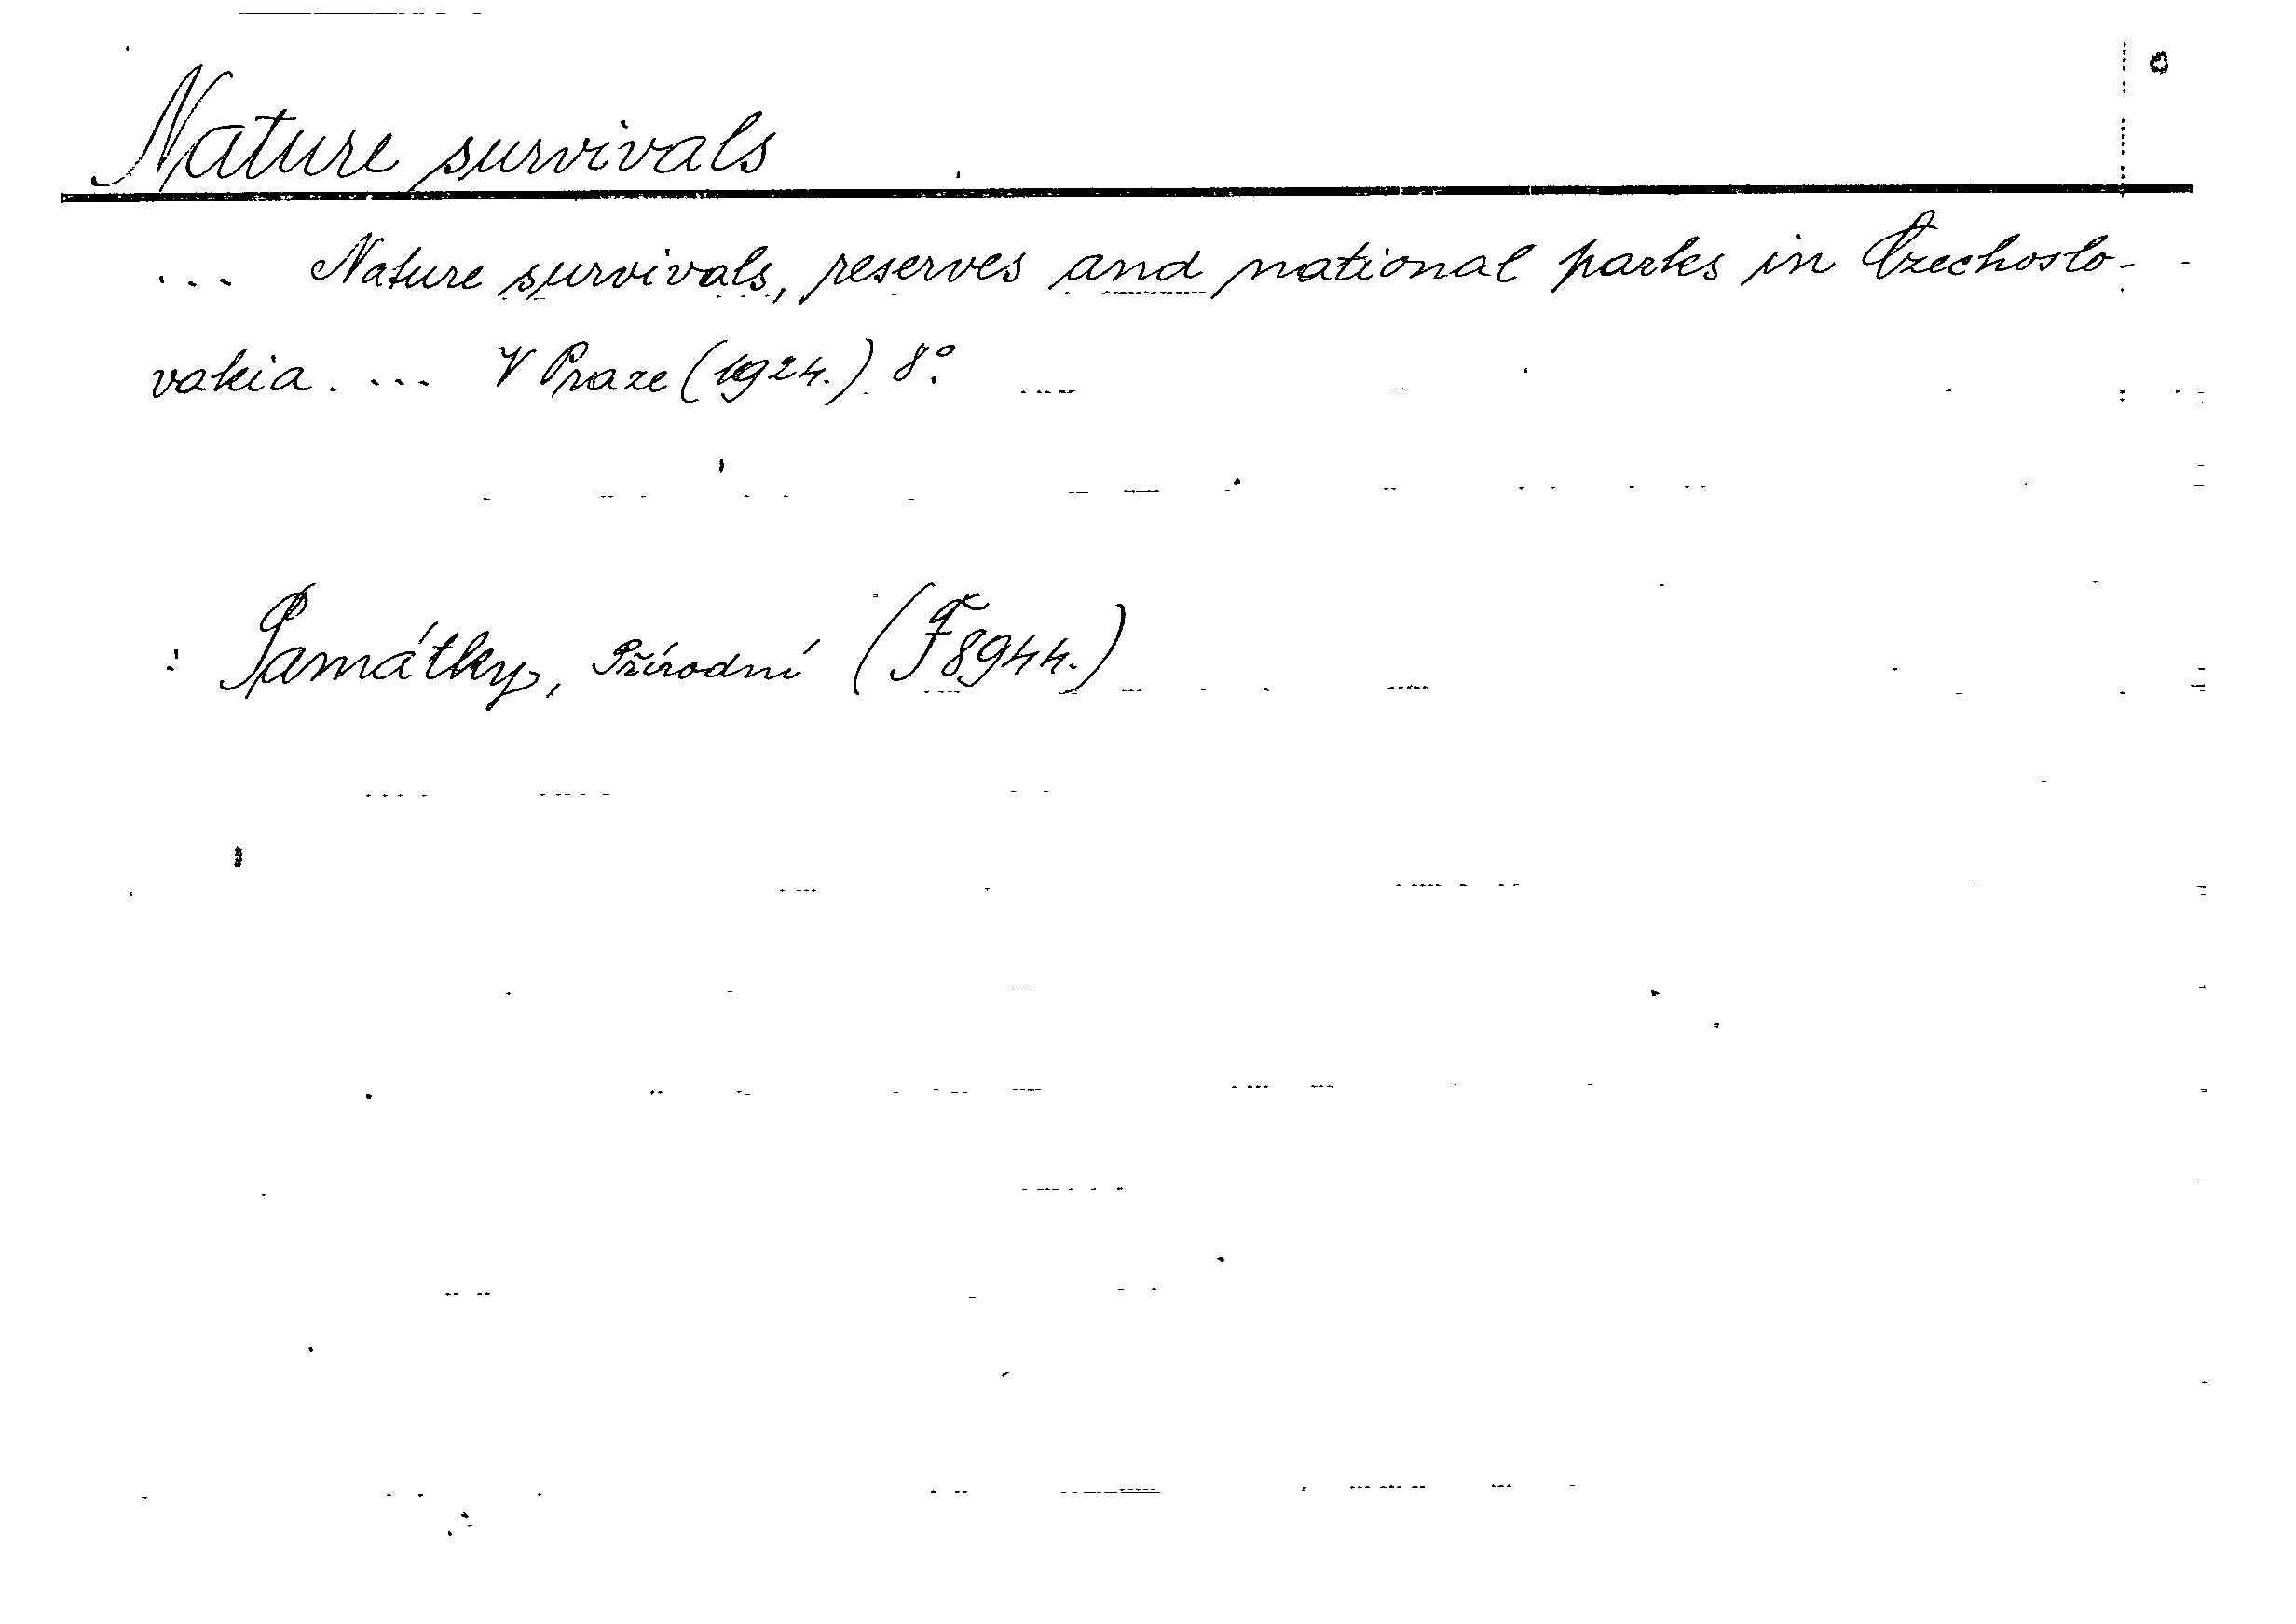 Nature survivals
... Nature survivals, reserves and national parks in Czechoslo-
vakia. ... V Praze (1924.) 8°.
: Památky, Přírodní (F 8944.)